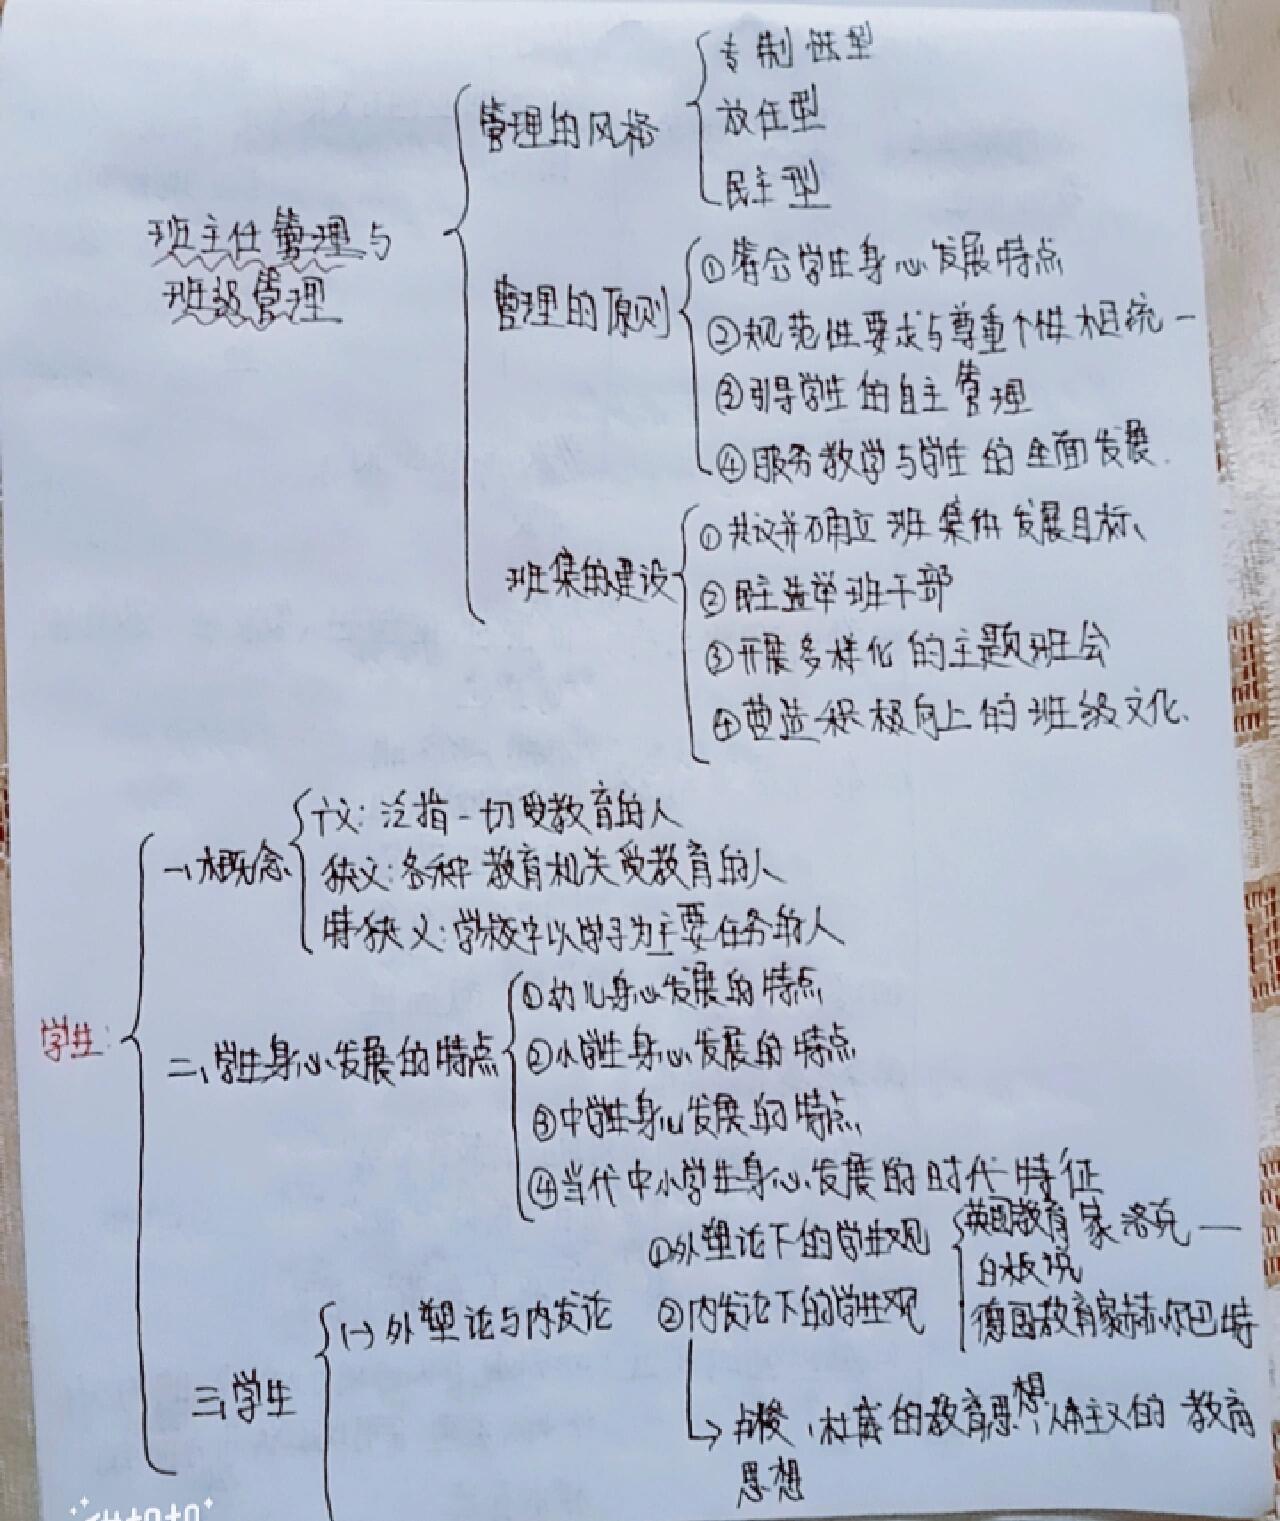 专制型
管理的风格
放任型
民主型
班主任管理与
班级管理
管理的原则
①符合学生身心发展特点
②规范性要求与尊重个性相统一
③引导学生的自主管理
④服务教学与学生的全面发展.
班集的建设
①共议并确立班集体发展目标、
②民主选举班干部
③开展多样化的主题班会
④营造积极向上的班级文化、
学生:
一、概念
广义:泛指一切受教育的人
狭义:各种教育机关受教育的人
特狭义:学校中以学习为主要任务的人
二、学生身心发展的特点
①幼儿身心发展的特点
②小学生身心发展的特点
③中学生身心发展的特点
④当代中小学生身心发展的时代特征
三、学生
(一)外塑论与内发论
①外塑论下的学生观
英国教育家洛克——
白板说
德国教育家赫尔巴特
②内发论下的学生观
→卢梭、杜威的教育思想,人本主义的教育
思想